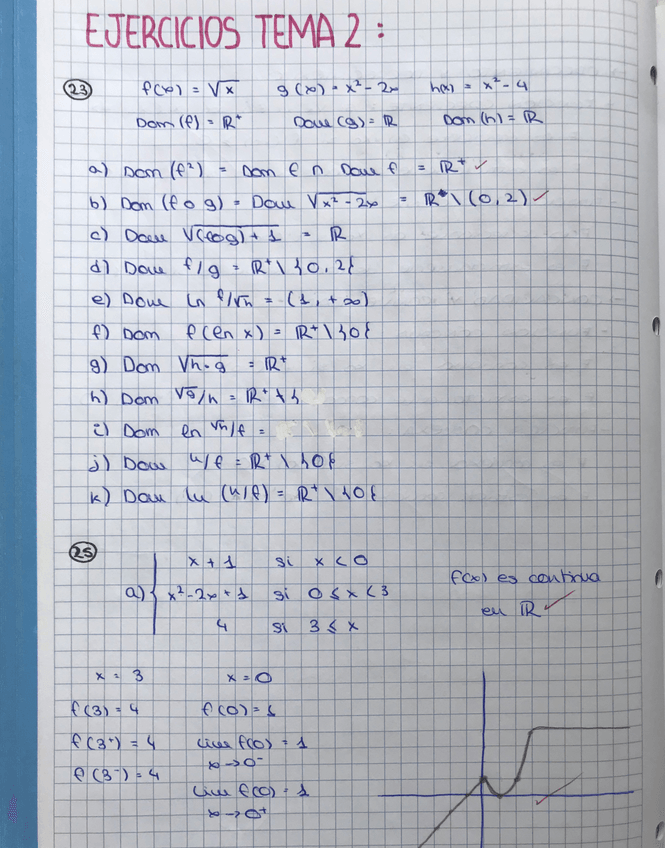 EJERCICIOS TEMA 2:
23 f(x) = √x g(x) = x² - 2x h(x) = x² - 4
Dom (f) = ℝ⁺ Dom (g) = ℝ Dom (h) = ℝ
a) Dom (f²) = Dom f ∩ Dom f = ℝ⁺ ✓
b) Dom (f o g) = Dom √x² - 2x = ℝ \ (0, 2) ✓
c) Dom √(fog) + 1 = ℝ
d) Dom f/g = ℝ⁺ \ {0, 2}
e) Dom ln f/√h = (1, +∞)
f) Dom f(ln x) = ℝ⁺ \ {0}
g) Dom √h·g = ℝ⁺
h) Dom √g/h = ℝ⁺ \ {
i) Dom ln √h/f =
j) Dom h/f = ℝ⁺ \ {0}
k) Dom ln (h/f) = ℝ⁺ \ {0}
25
x + 1 si x < 0
a) { x² - 2x + 1 si 0 ≤ x < 3 f(x) es continua
4 si 3 ≤ x en ℝ ✓
x = 3 x = 0
f(3) = 4 f(0) = 1
f(3⁺) = 4 lim f(0) = 1
x→0⁻
f(3⁻) = 4
lim f(0) = 1
x→0⁺